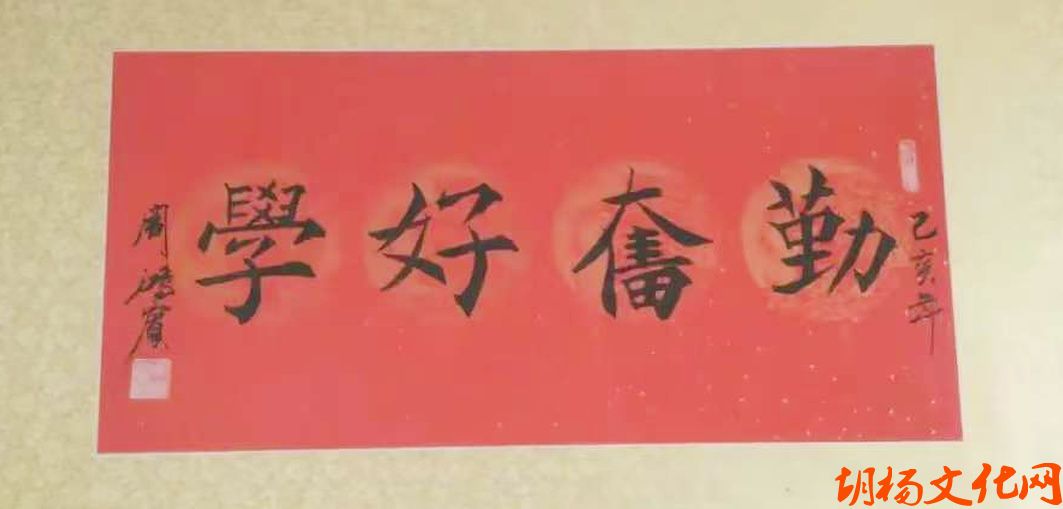 己亥年
勤奮好學
周鴻賓
胡杨文化网